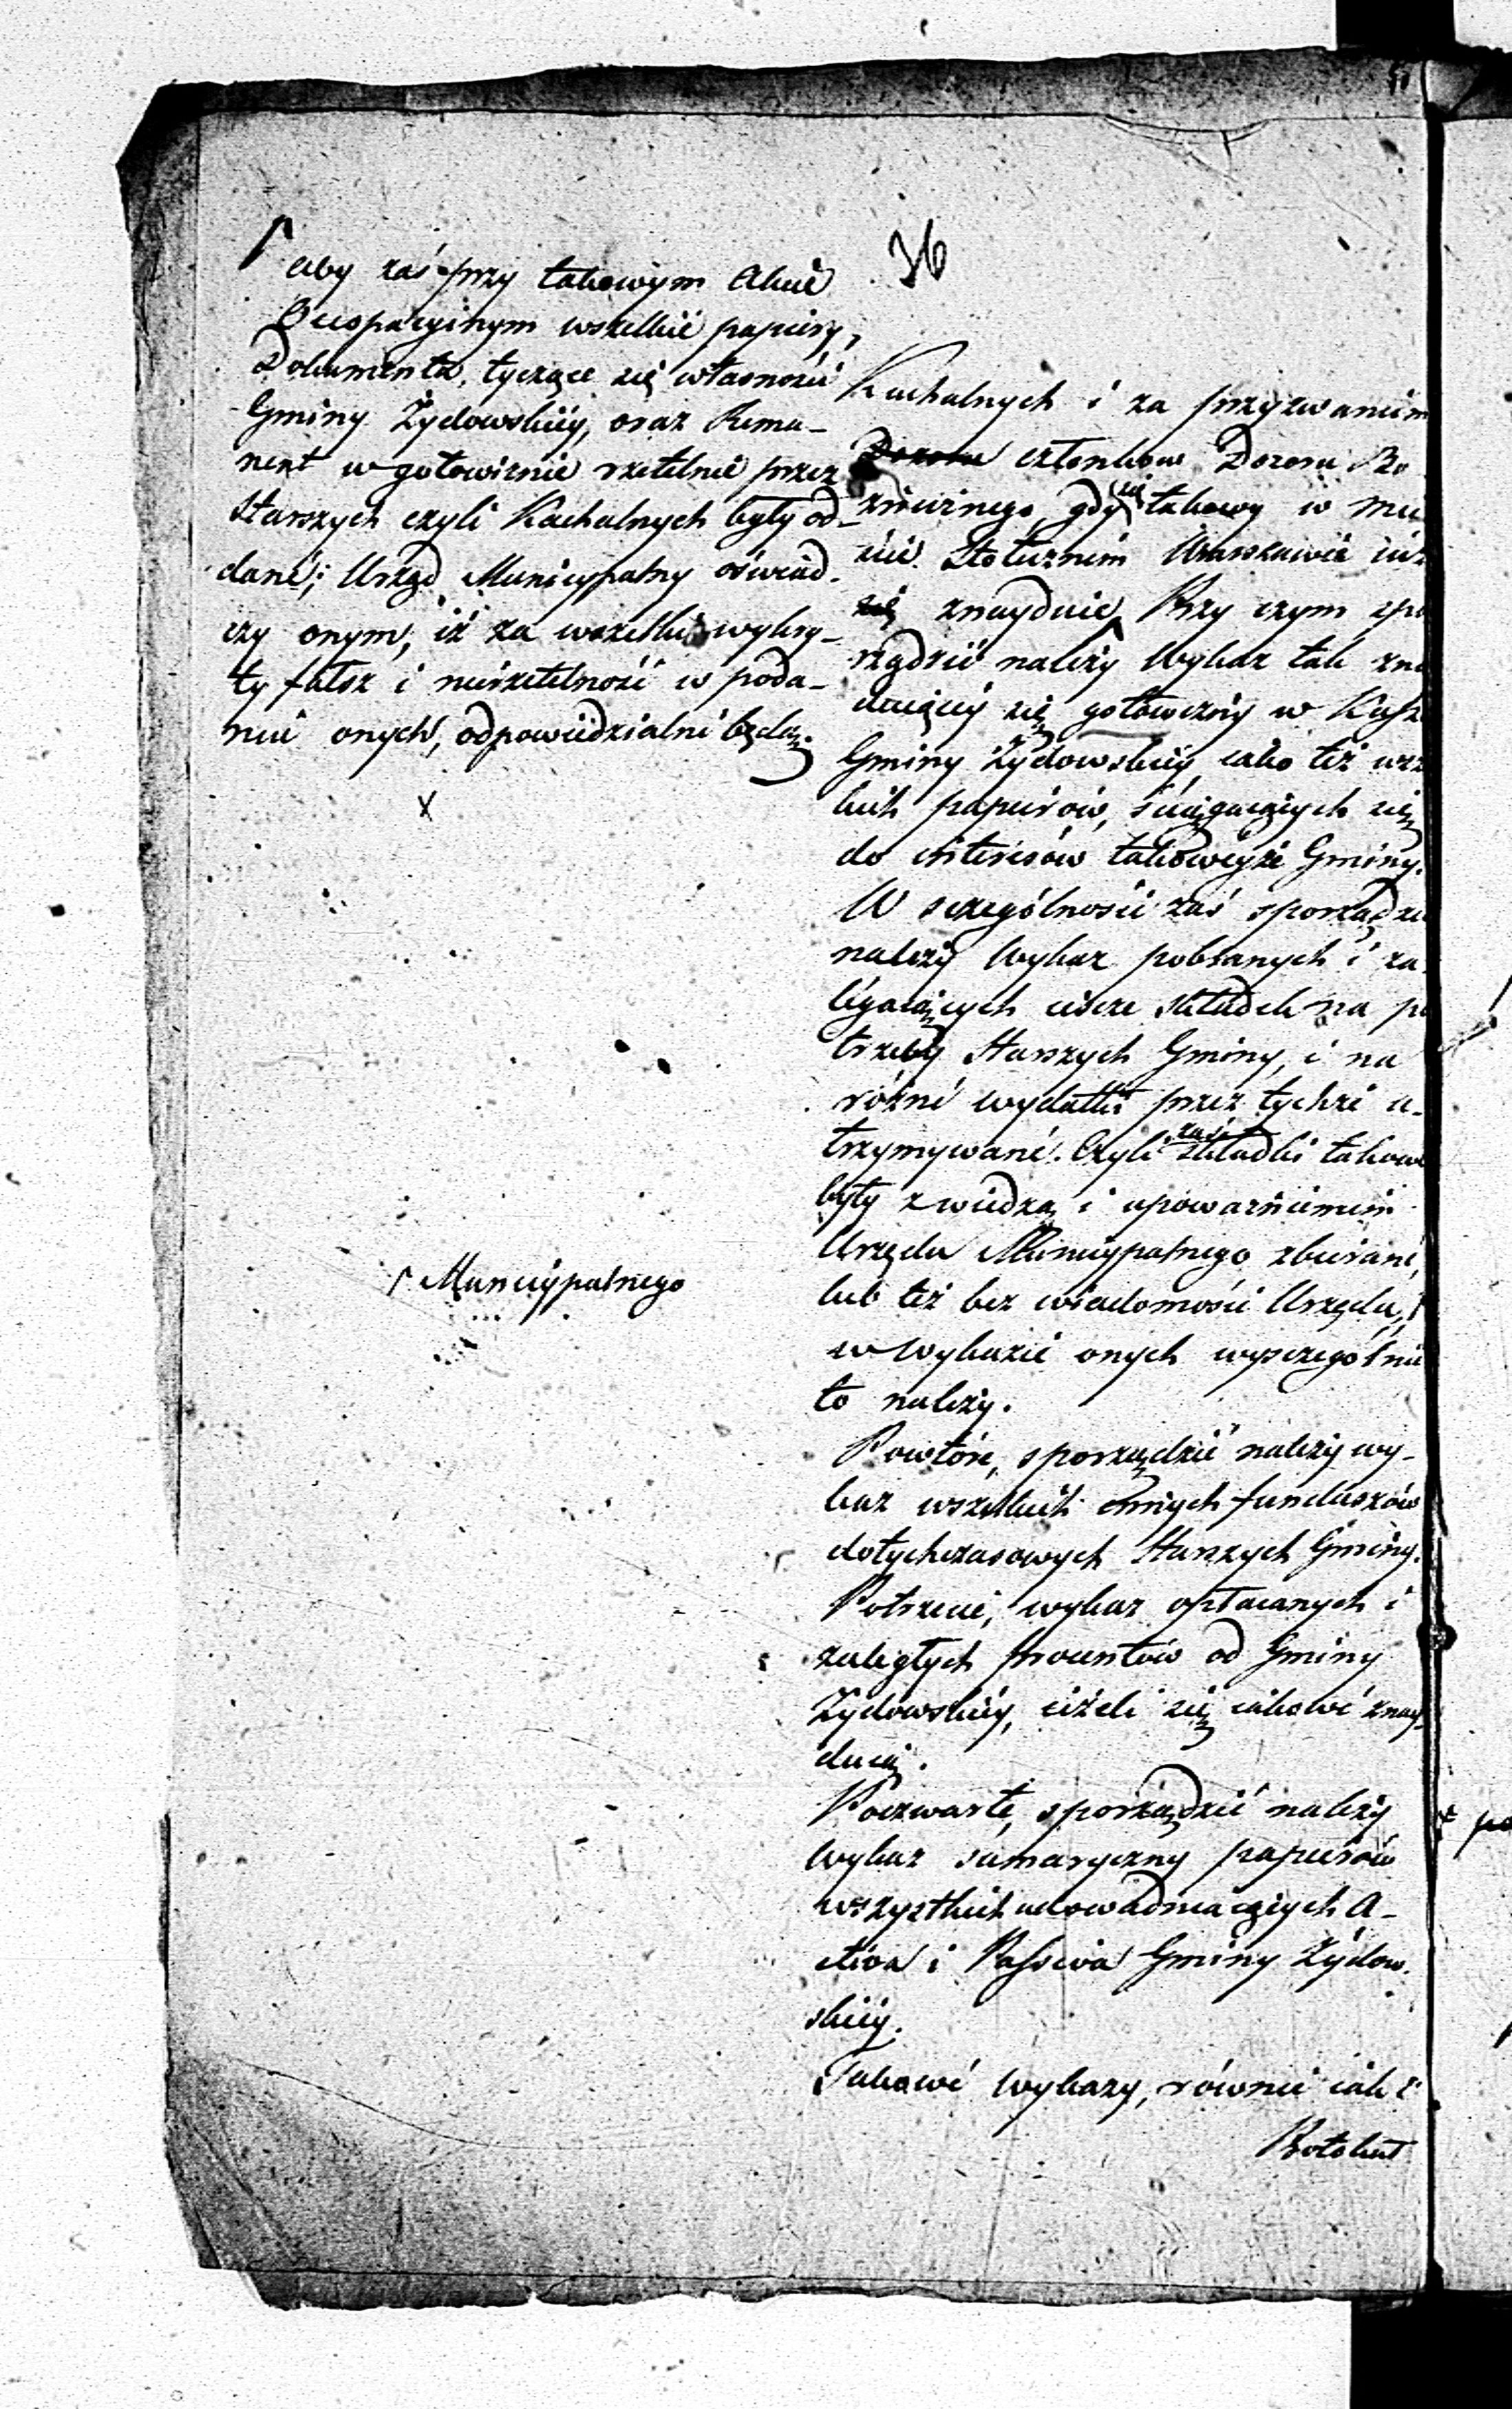 36
aby zaś przy takowym Akcie
Occupacyinym wszelkie papiery,
Dokumenta, tyczące się własności
Gminy Żydowskiéy, oraz Rema-
nent w gotowiznie rzetelnie przez
Starszych czyli Kachalnych były od-
dane; Urząd Municypalny oświad-
czy onym, iż za wszelki wykry-
ty fałsz i nierzetelność w poda-
niu onych, odpowiedzialni będą.
X
Municypalnego
Kachalnych i za przyzwaniem
Dozoru członków Dozoru Bo
znicznego, gdy się takowy w mie
ście Stołecznem Warszawie iuż
się znayduie, Przy czym spo
rządzić należy Wykaz tak zna
iduiącéy się gotowizny w Kass
Gminy Żydowskiéy, iako też wsz
kich papierów, ściągaiących się
do interesów takoweyże Gminy.
W sczególności zaś sporządzi
należy Wykaz pobranych i za-
légaiących ieszcze składek na po
trzeby Starszych Gminy, i na
różne wydatki przez tychże u-
trzymywane. Czyli zaś składki takowe
były z wiedzą i upoważnieniem
Urzędu Municypalnego zbierane,
lub też bez wiadomości Urzędu,
w Wykazie onych wyszczególni
to należy.
Powtóre, sporządzić należy wy-
kaz wszelkich innych funduszów
dotychczasowych Starszych Gminy.
Potrzecie, wykaz opłacanych i
zaległych procentów od Gminy
Żydowskiéy, ieżeli się iakowe znay
duią.
Poczwarte, sporządzić należy
Wykaz sumaryczny papierów
wszystkich udowadniaiących A-
ctiva i Passiva Gminy Żydow-
skiéy.
Takowe Wykazy, równie iak i
Protokuł